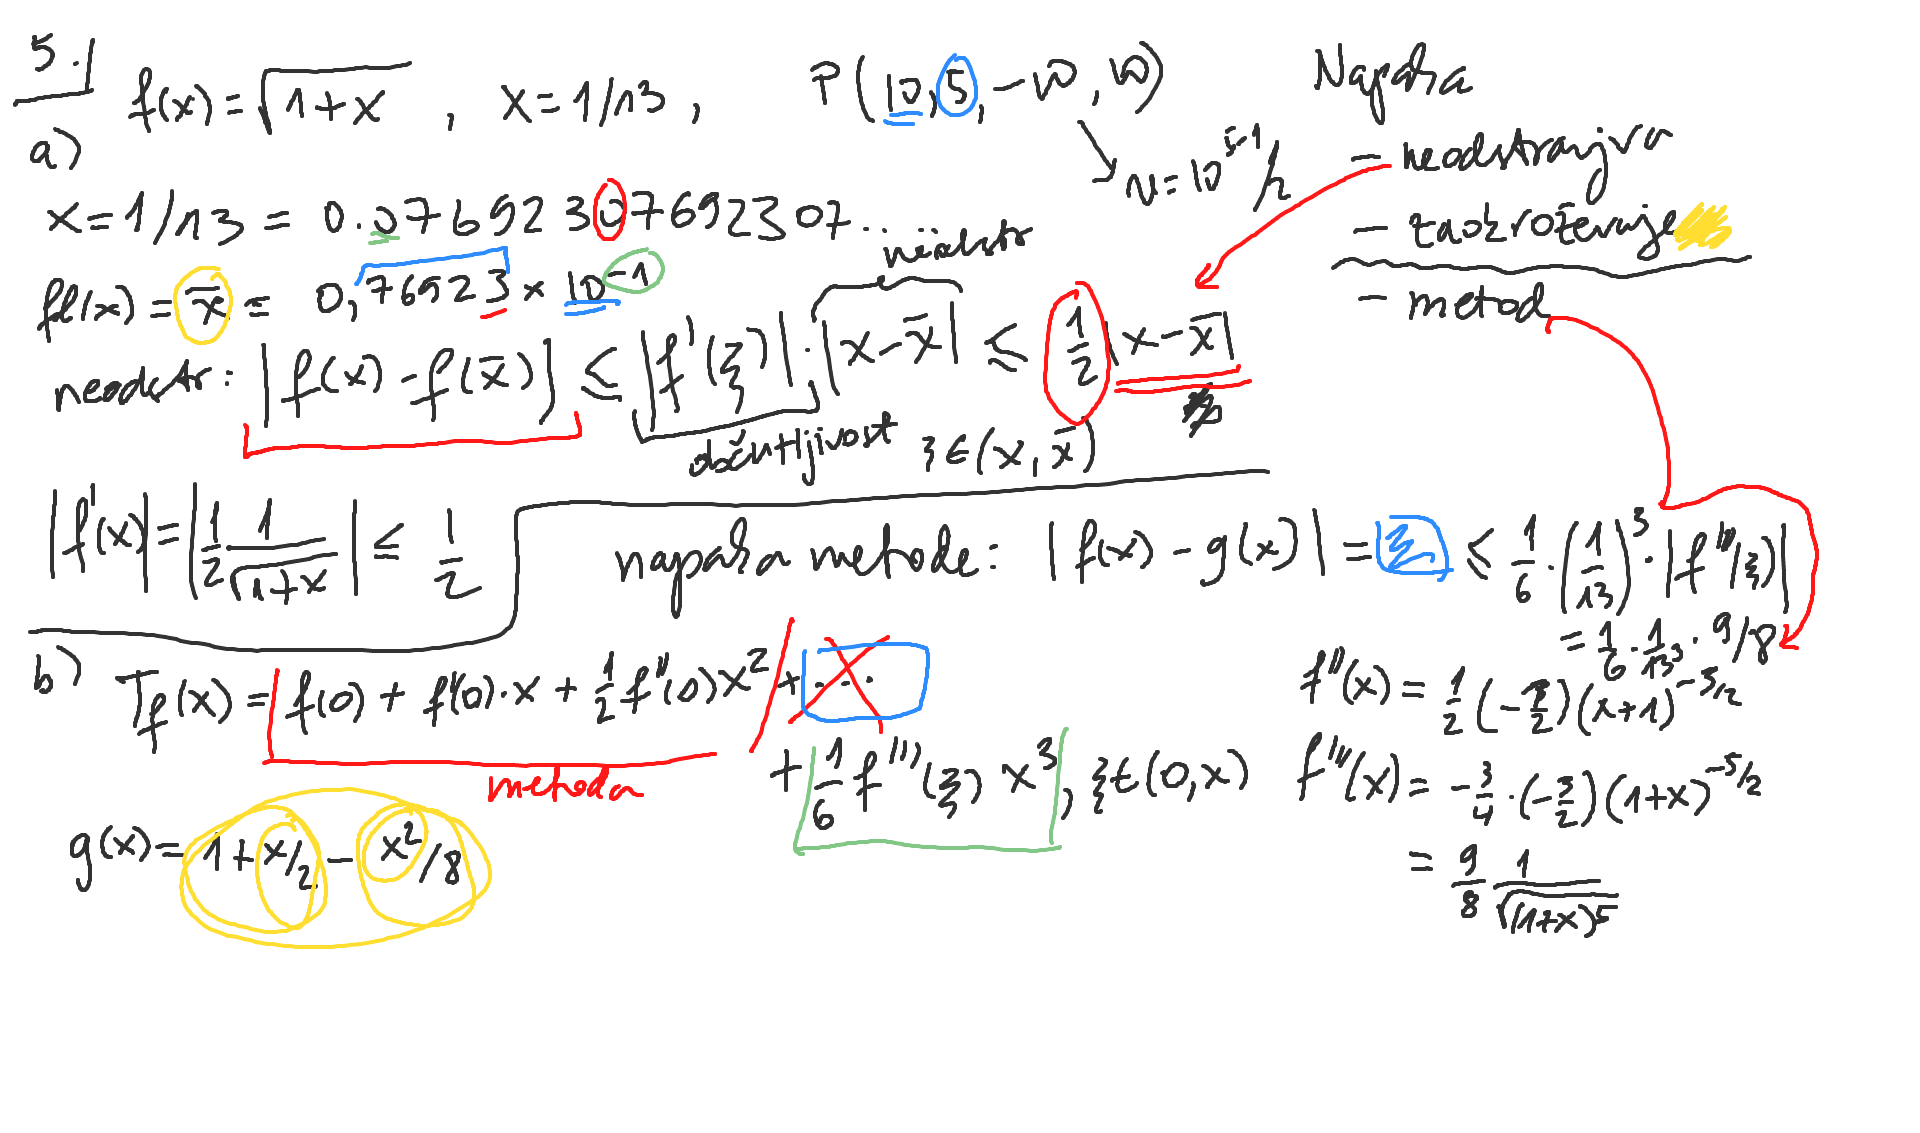 5.
a) f(x) = √(1+x) , x = 1/13 , P(10, 5, -10, 10)
u = 10^(5-1)/2
Napaka
- neodstranjiva
- zaokroževanje
- metod
x = 1/13 = 0.0769230769230 7...
fl(x) = x̄ = 0,76923 × 10^-1
neodstr
neodstr: |f(x) - f(x̄)| ≤ |f'(ξ)| · |x - x̄| ≤ 1/2 |x - x̄|
občutljivost ξ ∈ (x, x̄)
|f'(x)| = |1/2 · 1/√(1+x)| ≤ 1/2
napaka metode: |f(x) - g(x)| = ≤ 1/6 · (1/13)^3 · |f'''(ξ)|
= 1/6 · 1/13^3 · 9/8
b) T_f(x) = f(0) + f'(0)·x + 1/2 f''(0)x^2 + ...
metoda
+ 1/6 f'''(ξ) x^3, ξ ∈ (0, x)
g(x) = 1 + x/2 - x^2/8
f''(x) = 1/2 (-3/2)(x+1)^-5/2
f'''(x) = -3/4 · (-3/2)(1+x)^-5/2
= 9/8 1/√((1+x)^5)